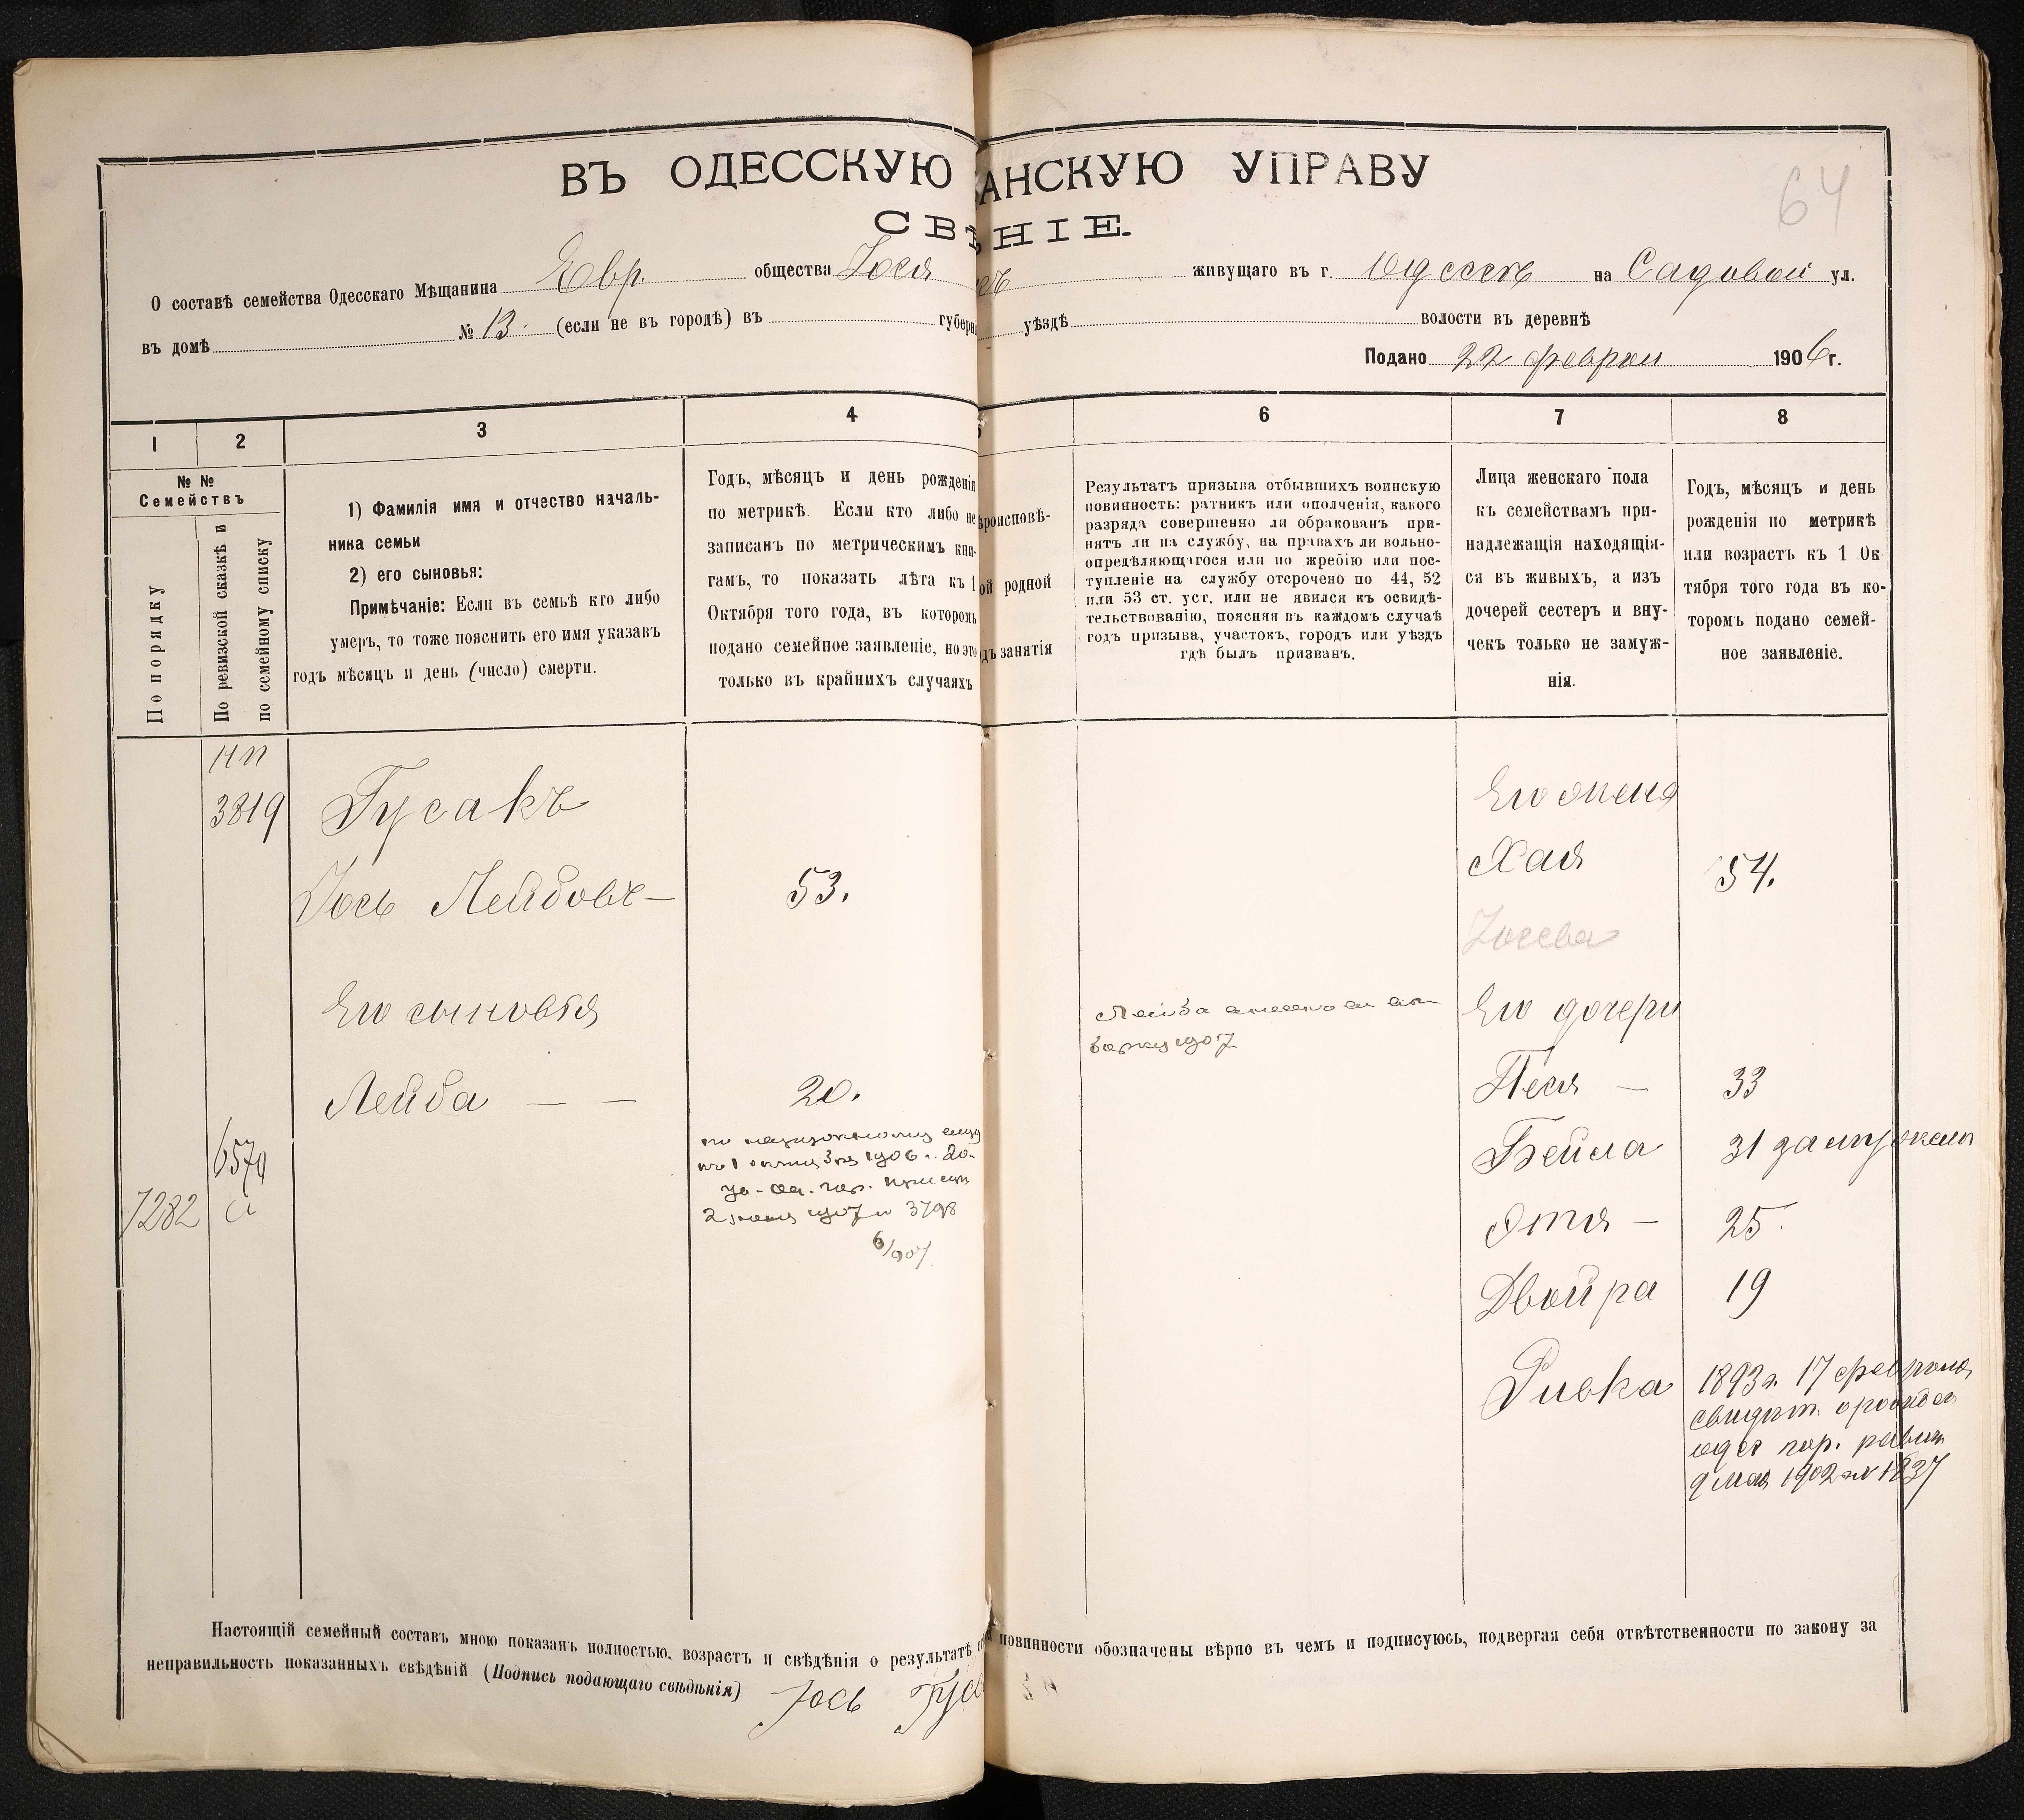 ВЪ ОДЕССКУЮ АНСКУЮ УПРАВУ
СВѢНІЕ.
64
О составѣ семейства Одесскаго Мѣщанина Евр. общества Іося живущаго въ г. Одессѣ на Садовой ул.
въ домѣ № 13 (если не въ городѣ) въ губерн уѣздѣ волости въ деревнѣ
Подано 22 феврал 1906 г.
1 2 3 4 5 6 7 8
№ №
Семействъ
По порядку
По ревизской сказкѣ и
по семейному списку
1) Фамилія имя и отчество началь-
ника семьи
2) его сыновья:
Примѣчаніе: Если въ семьѣ кто либо
умеръ, то тоже пояснить его имя указавъ
годъ мѣсяцъ и день (число) смерти.
Годъ, мѣсяцъ и день рожденія
по метрикѣ. Если кто либо не
записанъ по метрическимъ кни-
гамъ, то показать лѣта къ 1
Октября того года, въ которомъ
подано семейное заявленіе, но это
только въ крайнихъ случаяхъ
ѣроисповѣ-
ой родной
дъ занятія
Результатъ призыва отбывшихъ воинскую
повинность: ратникъ или ополченія, какого
разряда совершенно ли обракованъ при-
нятъ ли на службу, на правахъ ли вольно-
опредѣляющагося или по жребію или пос-
тупленіе на службу отсрочено по 44, 52
или 53 ст. уст. или не явился къ освидѣ-
тельствованію, поясняя въ каждомъ случаѣ
годъ призыва, участокъ, городъ или уѣздъ
гдѣ былъ призванъ.
Лица женскаго пола
къ семействамъ при-
надлежащія находящія-
ся въ живыхъ, а изъ
дочерей сестеръ и вну-
чекъ только не замуж-
нія.
Годъ, мѣсяцъ и день
рожденія по метрикѣ
или возрастъ къ 1 Ок
тября того года въ ко-
торомъ подано семей-
ное заявленіе.
НП
3819
Гусакъ
Іось Лейбовъ —
53.
Его сыновья
Лейба — —
20.
6579
а
7282
къ 1 октября 1906 г. 20.
2 іюня 1907 № 3798
6/907.
Лейба
1907
Его жена
Хая
54.
Іосева
Его дочери
Песя —
33
Бейла
31 замужемъ
Этя —
25.
Двойра
19
Ривка
1893 г. 17 февраля
свидѣт. о рожден
одес гор. раввин
9 мая 1902 № 1837
Настоящій семейный составъ мною показанъ полностью, возрастъ и свѣдѣнія о результатѣ повинности обозначены вѣрно въ чемъ и подписуюсь, подвергая себя отвѣтственности по закону за
неправильность показанныхъ свѣдѣній (Подпись подающаго свѣдѣнія) Іось Гуса